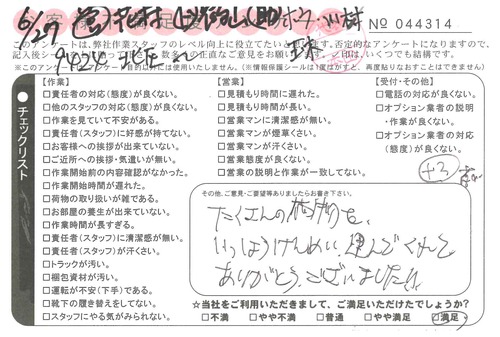 6/29
№ 044314
このアンケートは、弊社作業スタッフのレベル向上に役立てたいと
否定的なアンケートになりますので、
記入後シール
数多くの正直なご意見をお願い
いくつでも結構です。
※このアンケートは
目的以外には使用いたしません。(※情報保護シールは1度はがすと、再度貼りなおすことはできません)
チェックリスト
【作業】
□責任者の対応(態度)が良くない。
□他のスタッフの対応(態度)が良くない。
□作業を見ていて不安がある。
□責任者(スタッフ)に好感が持てない。
□お客様への挨拶が出来ていない。
□ご近所への挨拶・気遣いが無い。
□作業開始前の内容確認がなかった。
□作業開始時間が遅れた。
□荷物の取り扱いが雑である。
□お部屋の養生が出来ていない。
□作業時間が長すぎる。
□責任者(スタッフ)に清潔感が無い。
□責任者(スタッフ)が汗くさい。
□トラックが汚い。
□梱包資材が汚い。
□運転が不安(下手)である。
□靴下の履き替えをしてない。
□スタッフにやる気がみられない。
【営業】
□見積もり時間に遅れた。
□見積もり時間が長い。
□営業マンに清潔感が無い。
□営業マンが煙草くさい。
□営業マンが汗くさい。
□営業態度が良くない。
□営業の説明と作業が一致してない。
【受付・その他】
□電話の対応が良くない。
□オプション業者の説明
・作業が良くない。
□オプション業者の対応
(態度)が良くない。
+3
その他、ご意見・ご要望等ありましたらお書き下さい。
たくさんの荷物を、
いっしょうけんめい、運んでくれて
ありがとうございました。
☆当社をご利用いただきまして、ご満足いただけたでしょうか?
□不満 □やや不満 □普通 □やや満足 □満足